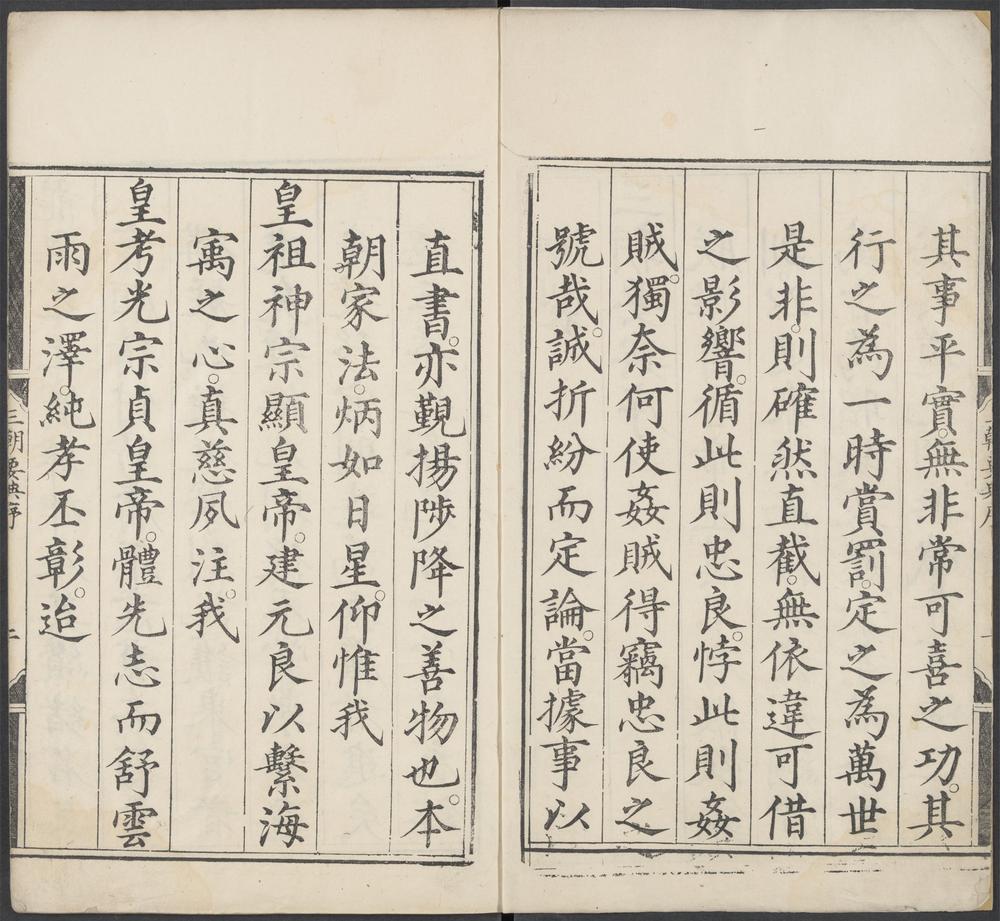 其事平實。無非常可喜之功。其
行之為一時賞罰。定之為萬世
是非。則確然直截。無依違可借
之影響。循此則忠良。悖此則姦
賊。獨奈何使姦賊得竊忠良之
號哉。誠折紛而定論。當據事以
直書。亦覲揚陟降之善物也。本
朝家法。炳如日星。仰惟我
皇祖神宗顯皇帝。建元良以繫海
寓之心。真慈夙注。我
皇考光宗貞皇帝。體先志而舒雲
雨之澤。純孝丕彰。迨
三朝要典序
二